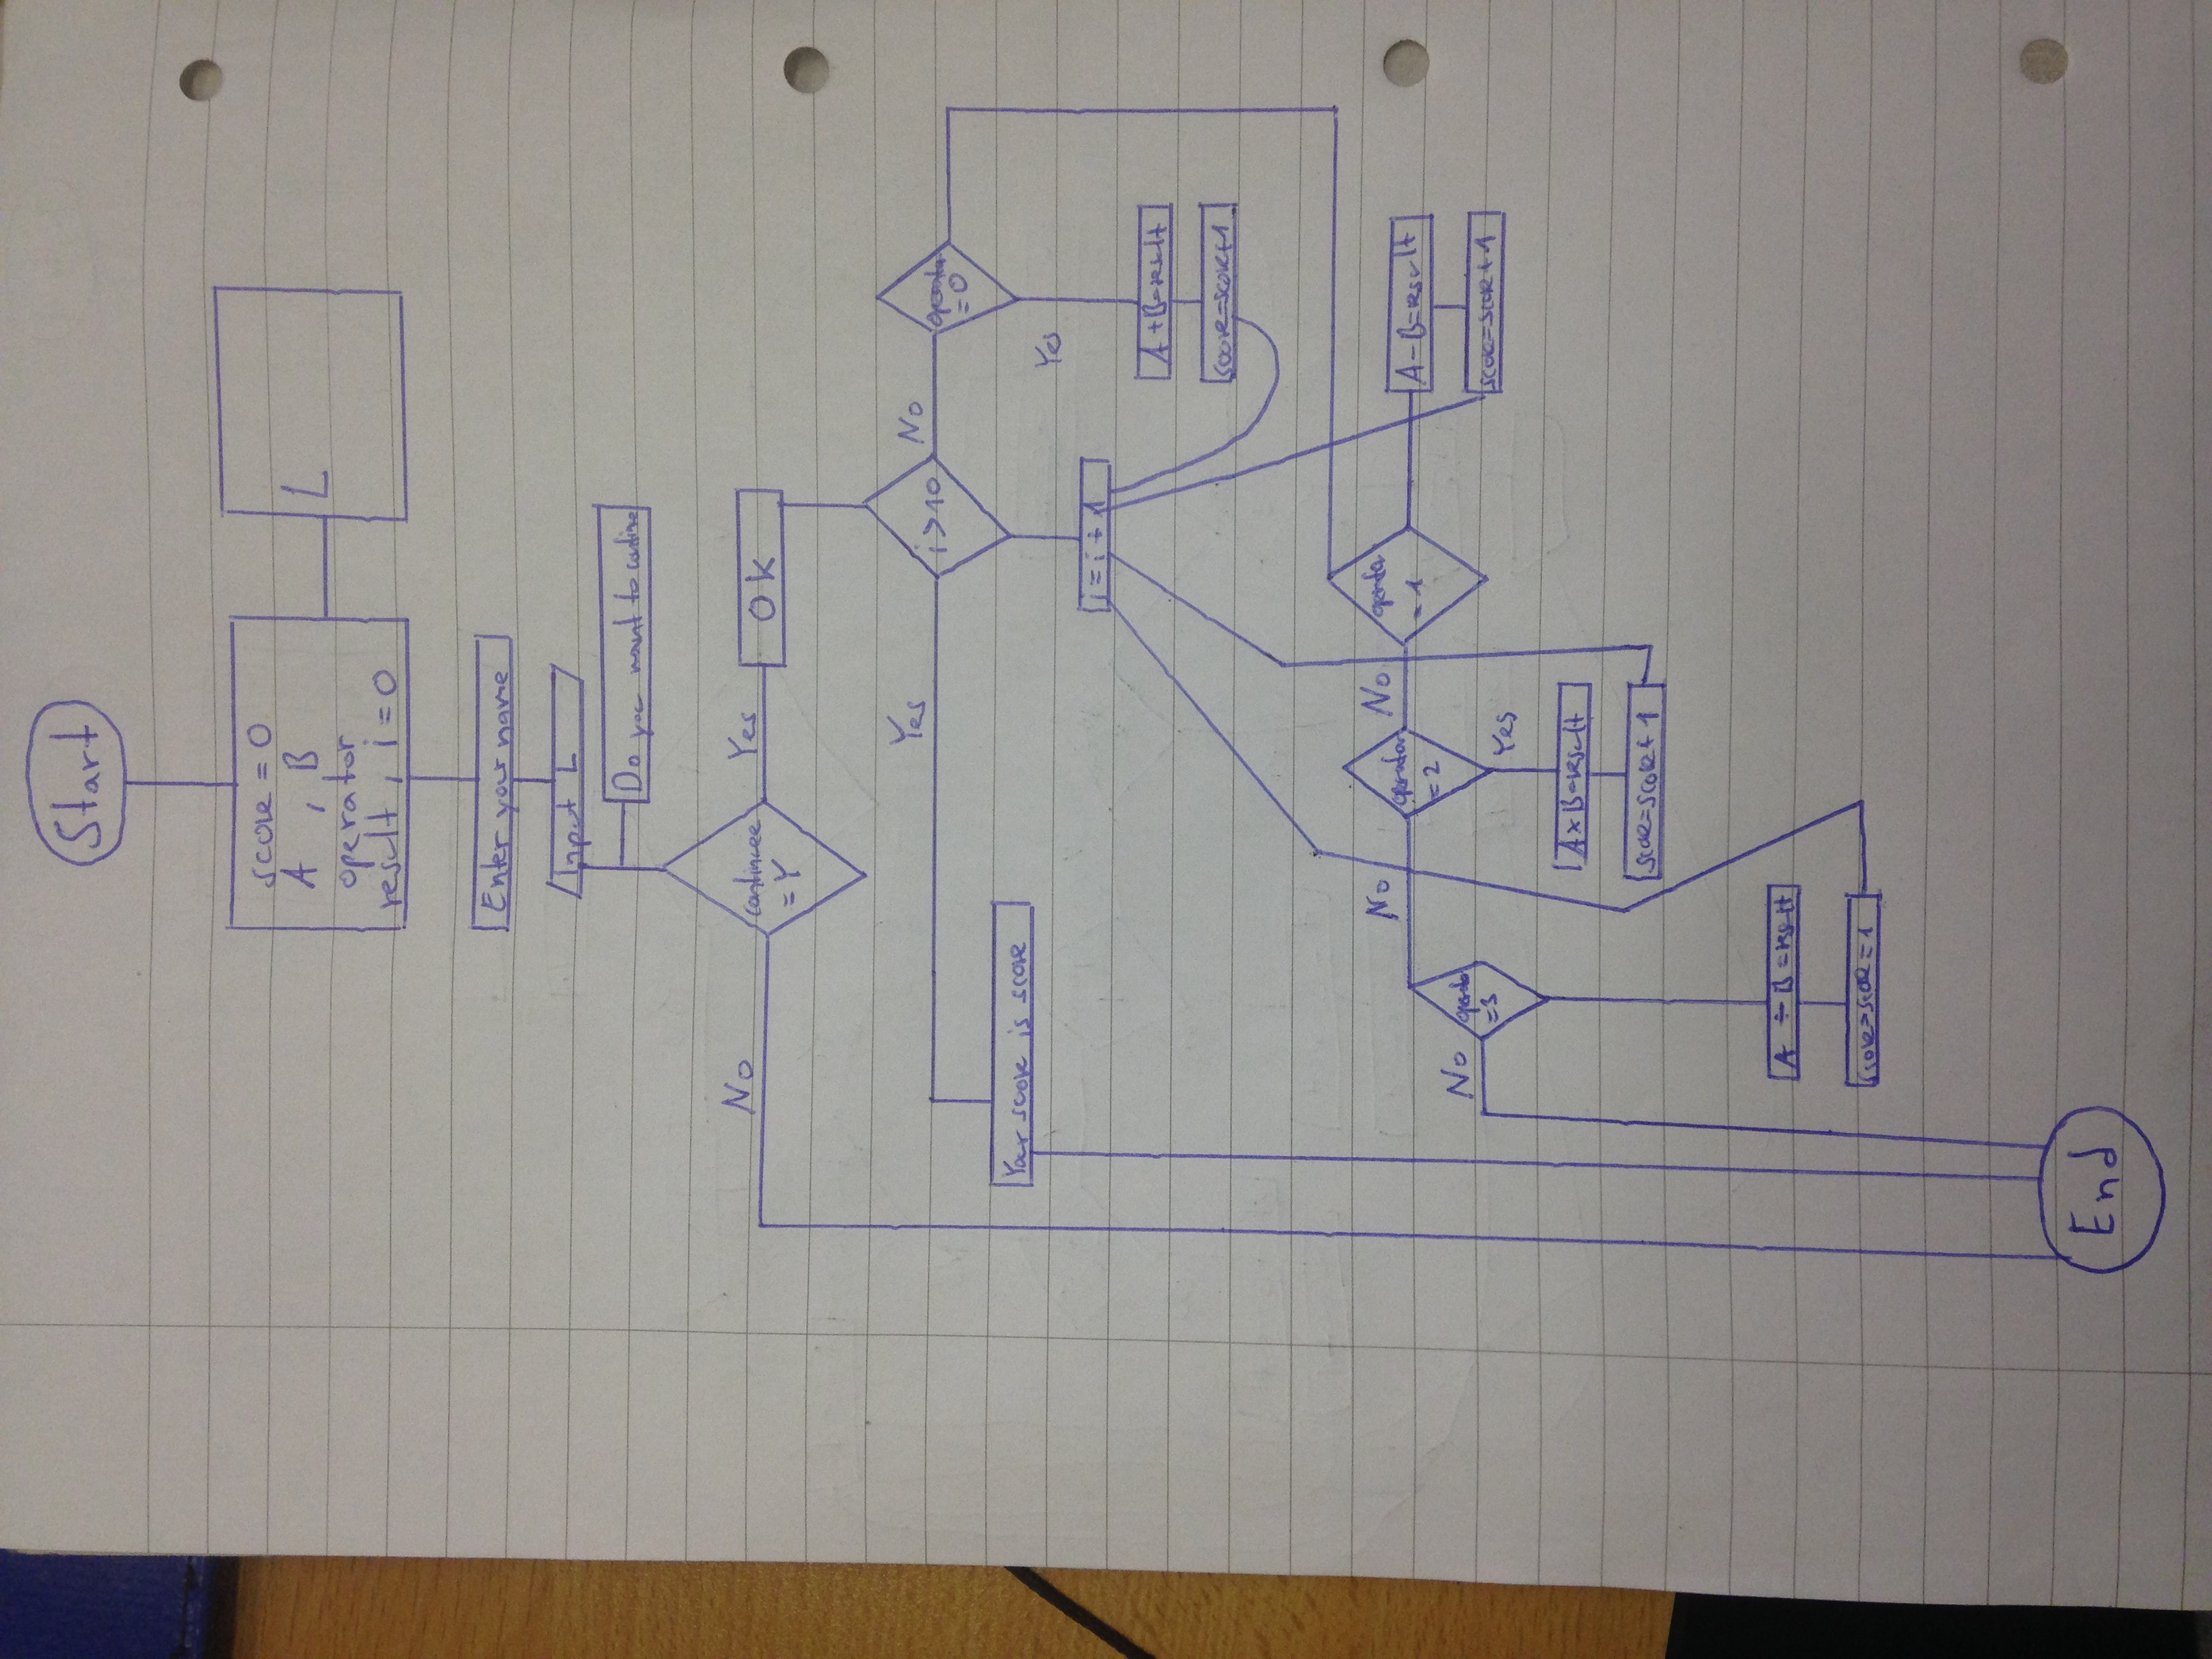 Start
score = 0
A , B
operator
result , i = 0
L
Enter your name
Input L
Do you want to continue
No
continuee
= Y
Yes
Ok
Yes
i > 10
No
operator
= 0
Your score is score
Yes
i = i + 1
A + B = result
score = score + 1
No
operator
= 2
No
operator
= 1
A - B = result
No
operator
= 3
score = score + 1
Yes
A x B = result
score = score + 1
A ÷ B = result
score = score = 1
End